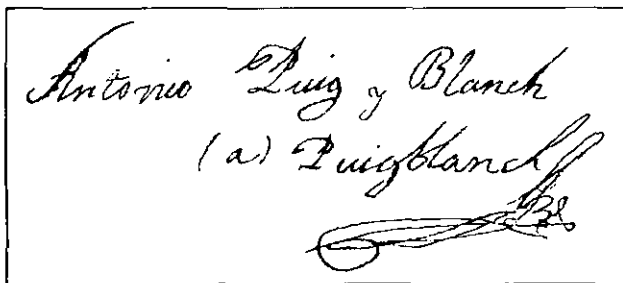 Antonio Puig y Blanch
(a) Puigblanch